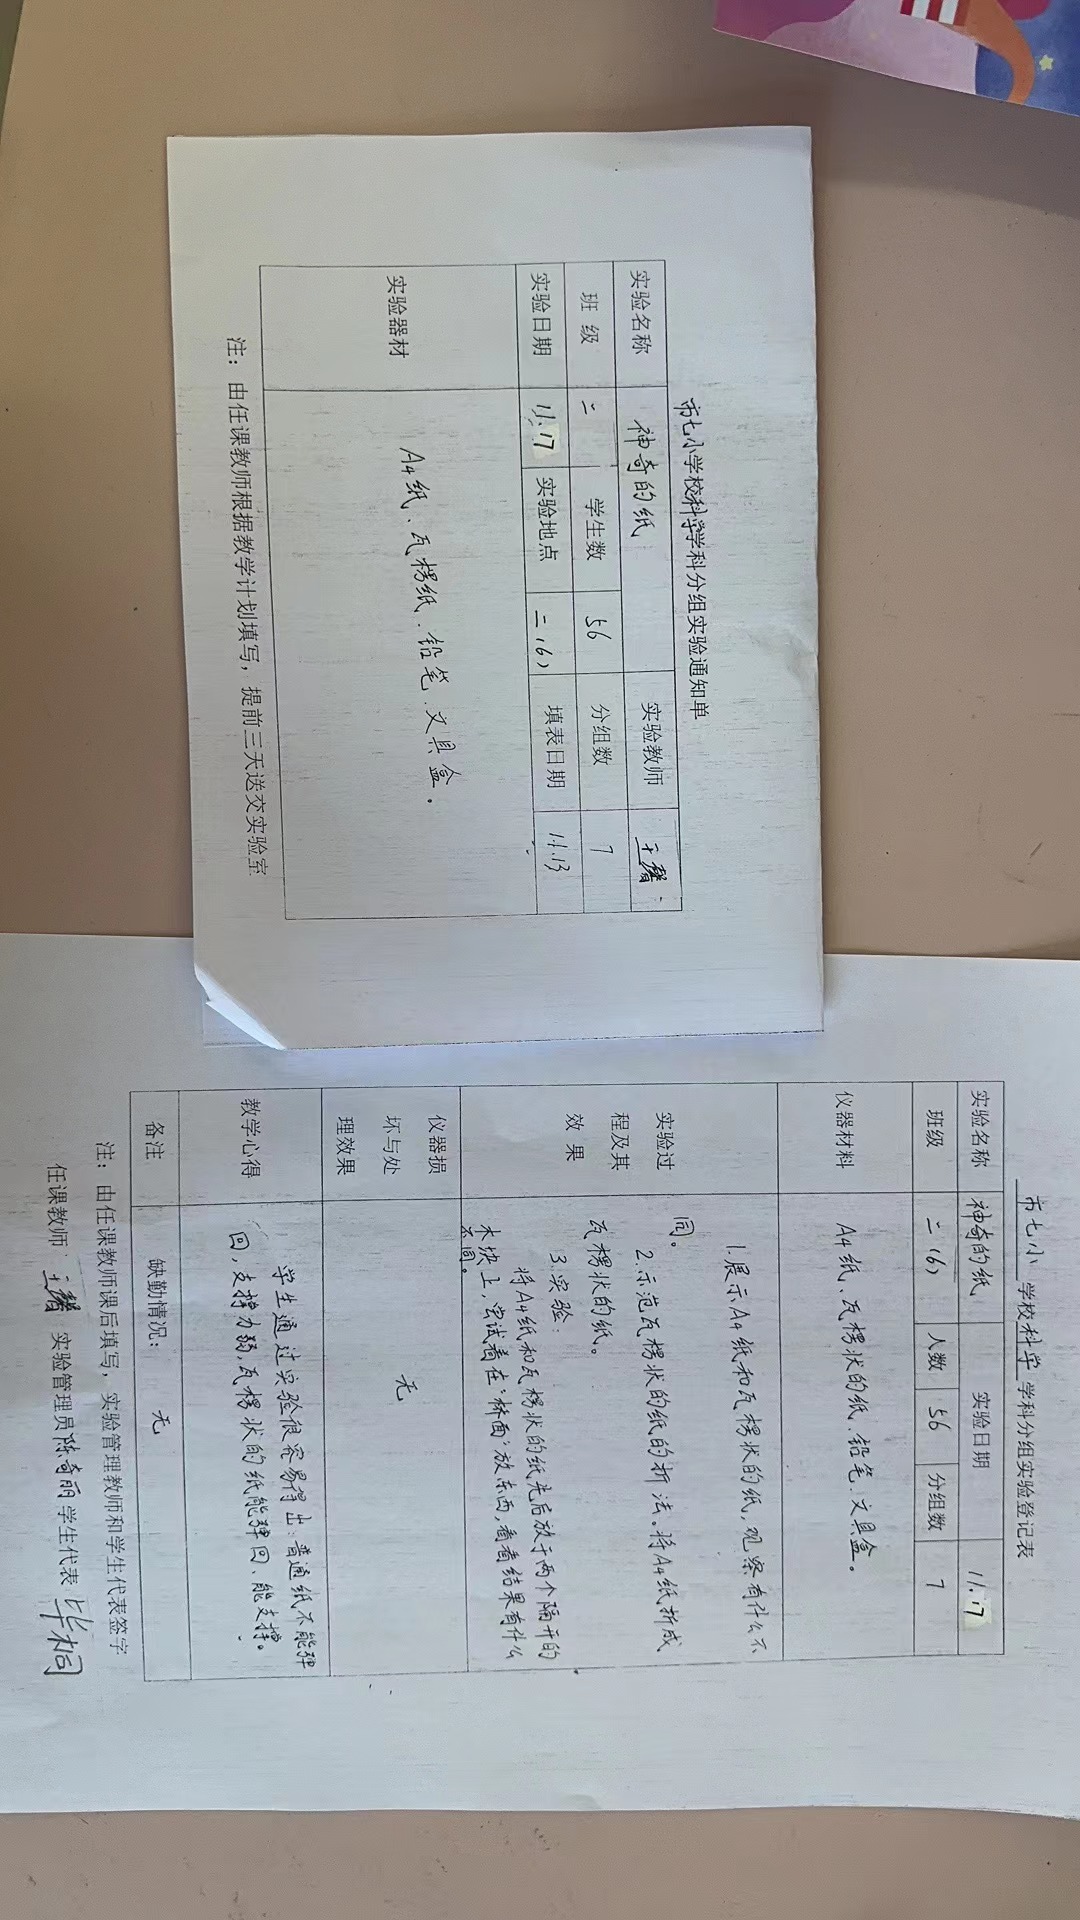 市七小学校科学学科分组实验通知单
实验名称 神奇的纸 实验教师
班 级 二 学生数 56 分组数 7
实验日期 11.17 实验地点 二(6) 填表日期 11.13
实验器材 A4纸、瓦楞纸、铅笔、文具盒。
注：由任课教师根据教学计划填写，提前三天送交实验室
市七小 学校科学学科分组实验登记表
实验名称 神奇的纸 实验日期 11.17
班级 二(6) 人数 56 分组数 7
仪器材料 A4纸、瓦楞状的纸、铅笔、文具盒。
实验过
程及其
效 果
1.展示A4纸和瓦楞状的纸，观察有什么不
同。
2.示范瓦楞状的纸的折法。将A4纸折成
瓦楞状的纸。
3.实验：
将A4纸和瓦楞状的纸先后放于两个隔开的
木块上，尝试着在“桥面”放东西，看看结果有什么
不同。
仪器损
坏与处
理效果
无
教学心得
学生通过实验很容易得出：普通纸不能弹
回，支撑力弱，瓦楞状的纸能弹回、能支撑。
备注 缺勤情况： 无
注：由任课教师课后填写，实验管理教师和学生代表签字
任课教师： 实验管理员 陈奇丽 学生代表 毕桐